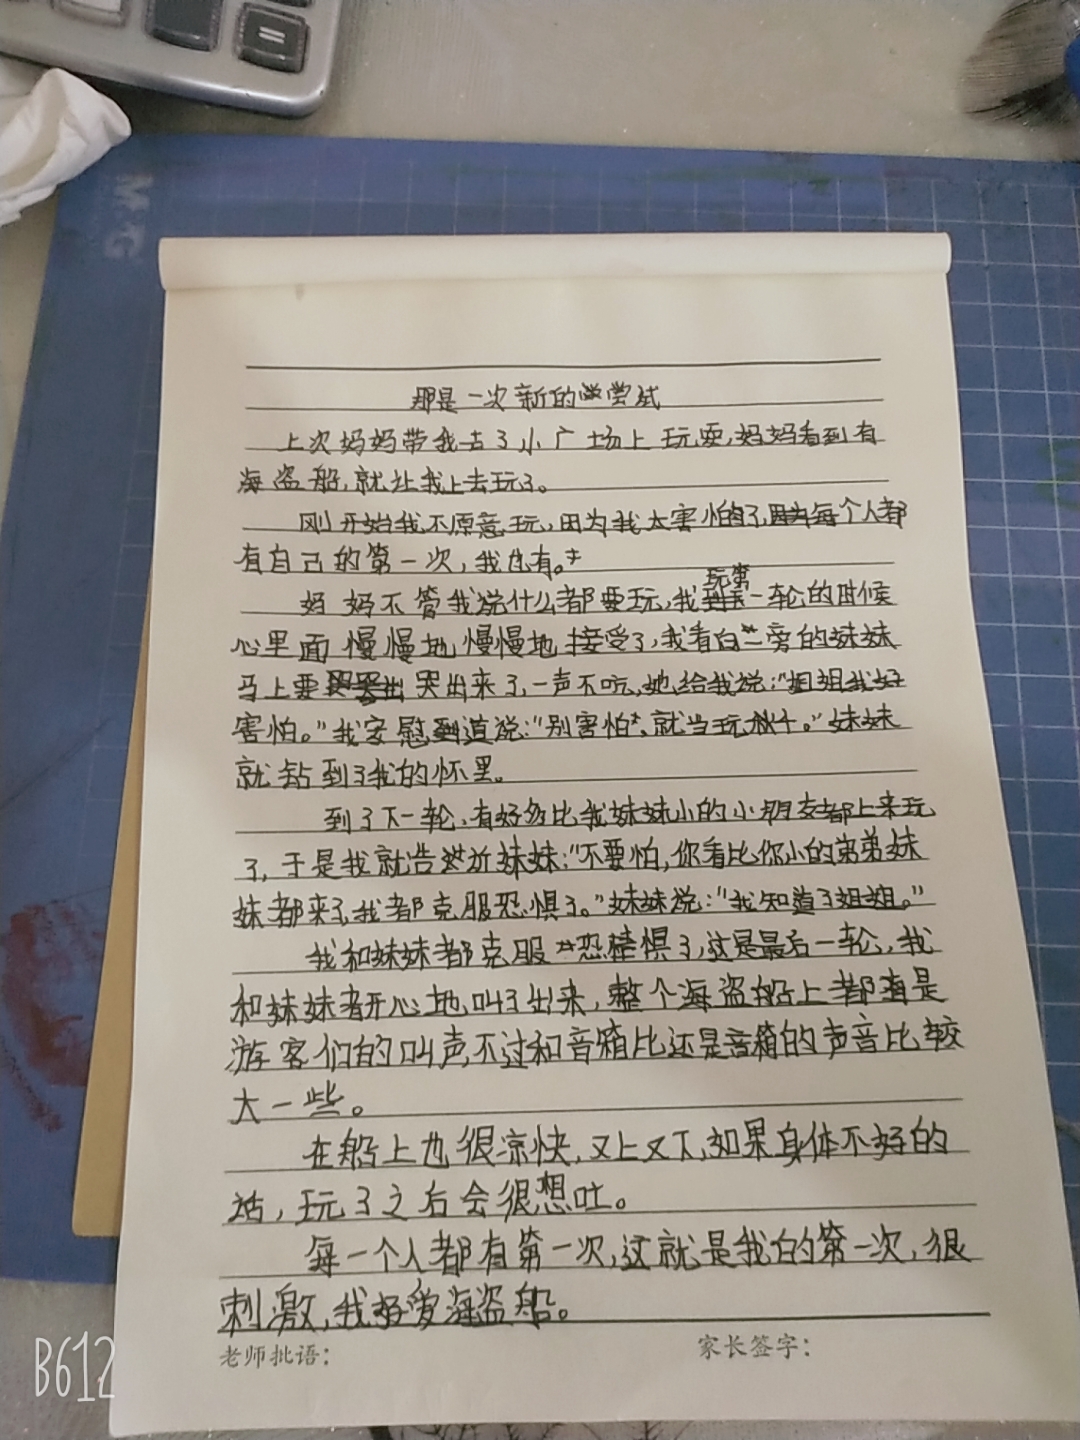 =
M&G
那是一次新的尝试
上次妈妈带我去了小广场上玩耍,妈妈看到有
海盗船,就让我上去玩了。
刚开始我不原意玩,因为我太害怕的了,因为每个人都
有自己的第一次,我也有。
妈妈不管我说什么都要玩,我玩第一轮的时候
心里面慢慢地慢慢地接受了,我看白一旁的妹妹
马上要哭出来了,一声不吭,她给我说:“姐姐我好
害怕。”我安慰到道说:“别害怕,就当玩秋千。”妹妹
就钻到了我的怀里。
到了下一轮,有好多比我妹妹小的小朋友都上来玩
了,于是我就告送妹妹:“不要怕,你看比你小的弟弟妹
妹都来了,我都克服恐惧了。”妹妹说:“我知道了姐姐。”
我和妹妹都克服恐惧了,这是最后一轮,我
和妹妹都开心地叫了出来,整个海盗船上都是
游客们的叫声,不过和音箱比还是音箱的声音比较
大一些。
在船上也很凉快,又上又下,如果身体不好的
话,玩了之后会很想吐。
每一个人都有第一次,这就是我的第一次,很
刺激,我好爱海盗船。
老师批语: 家长签字:
B612